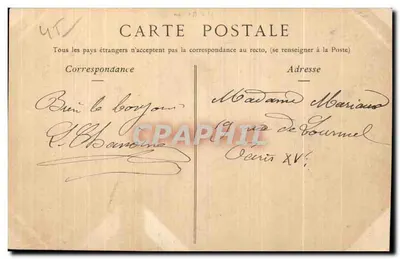 CARTE POSTALE
Tous les pays étrangers n'acceptent pas la correspondance au recto, (se renseigner à la Poste)
Correspondance
Adresse
Bien le bonjour
Madame
rue de Tournel
Paris XVe
CPARAMA